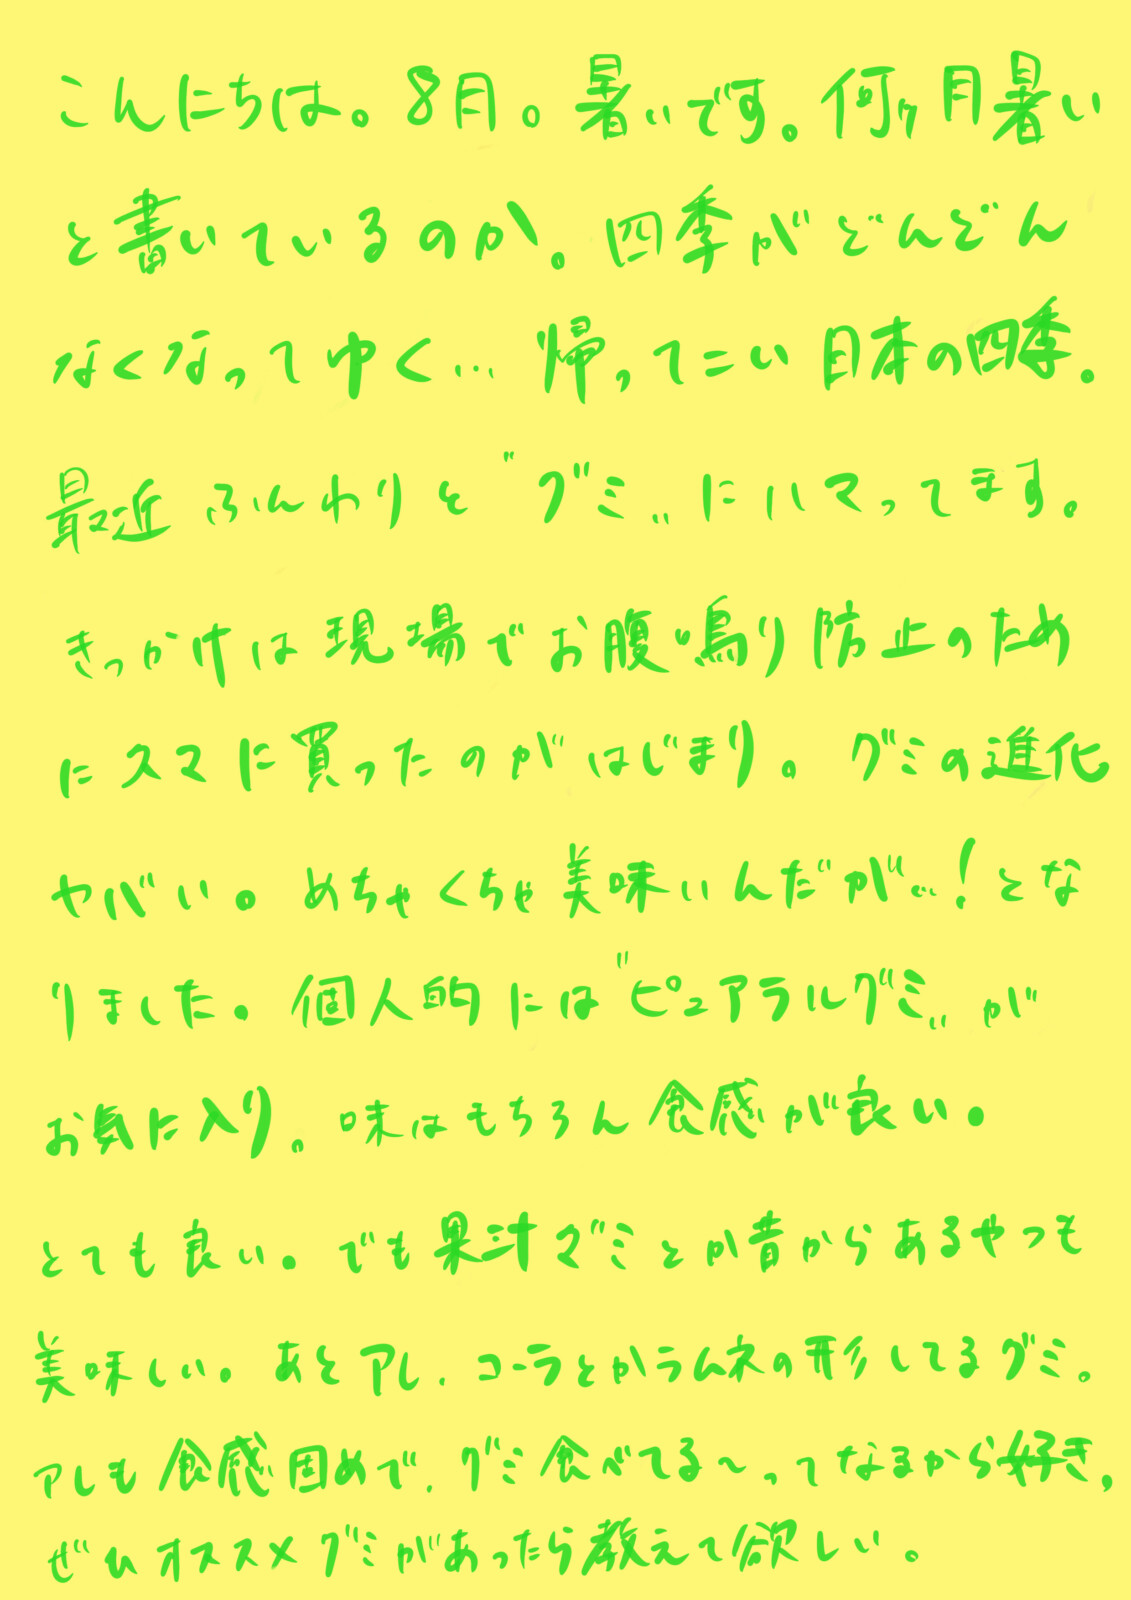 こんにちは。8月。暑いです。何ヶ月暑い
と書いているのか。四季がどんどん
なくなってゆく… 帰ってこい日本の四季。
最近ふんわりと"グミ"にハマってます。
きっかけは現場でお腹鳴り防止のため
にスマに買ったのがはじまり。グミの進化
ヤバい。めちゃくちゃ美味いんだが…!とな
りました。個人的には"ピュアラルグミ"が
お気に入り。味はもちろん食感が良い。
とても良い。でも果汁グミとか昔からあるやつも
美味しい。あとアレ、コーラとかラムネの形してるグミ。
アレも食感固めで、グミ食べてる〜ってなるから好き、
ぜひオススメグミがあったら教えて欲しい。